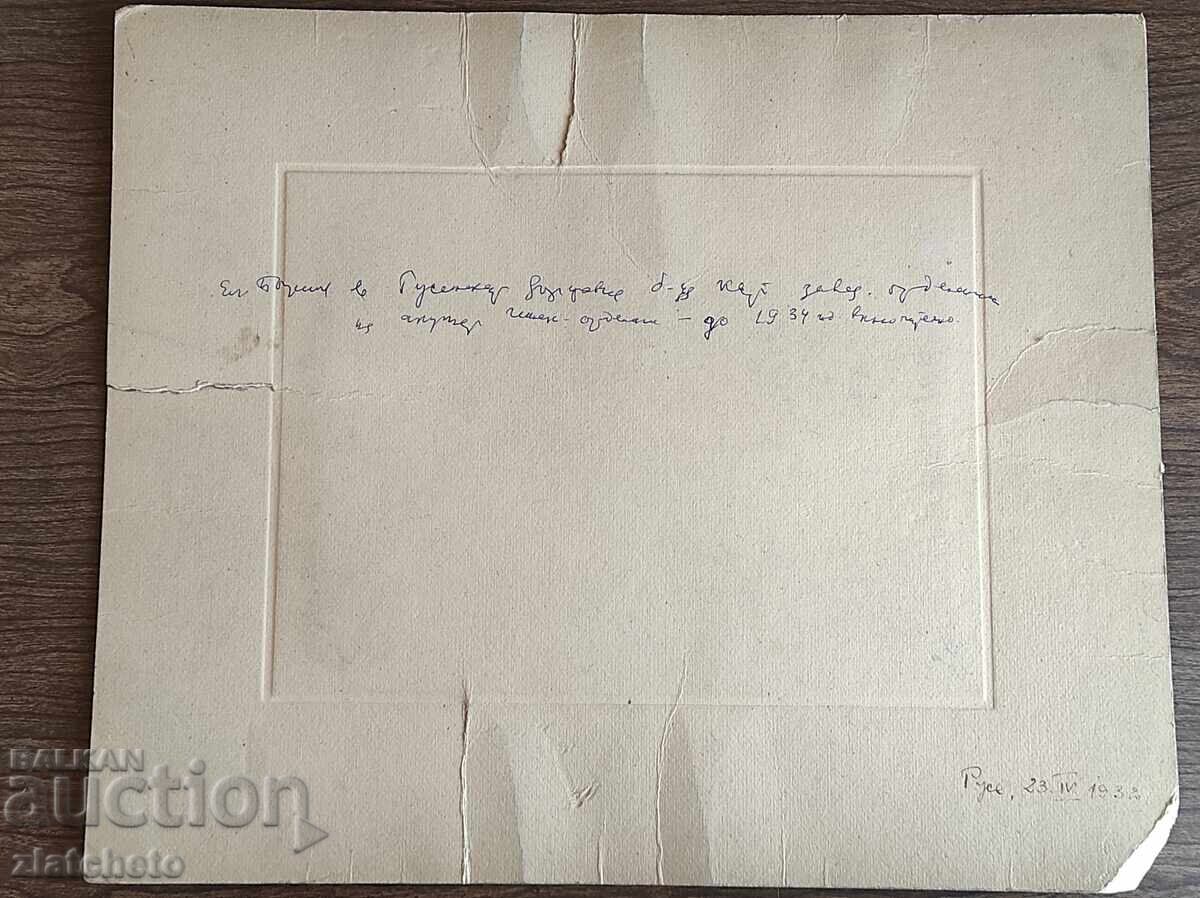 в Русенска държавна б-ца като завед. отделение
на акушер. гинек. отделение – до 1934 год включително.
Русе, 23.IV.1932
BALKAN
auction
zlatcheto